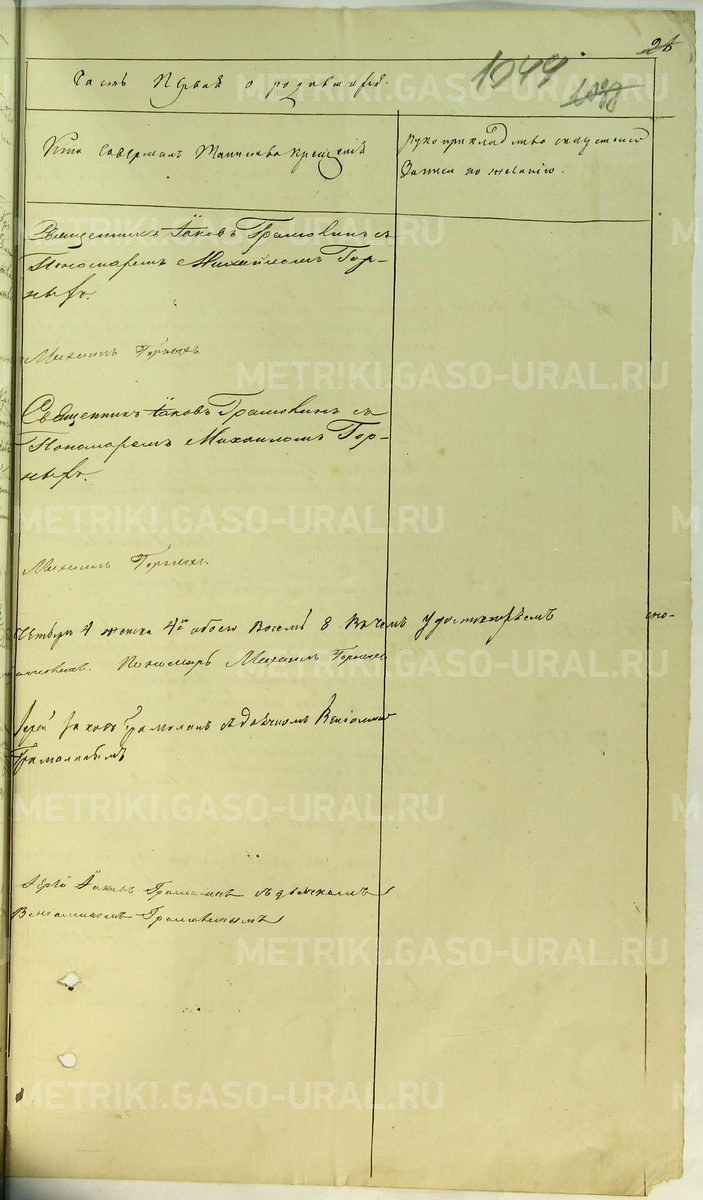 26
Часть Первая о родившихся.
1044
1033
Кто совершалъ Таинство крещенія
Рукоприкладство свидетелей
записи по желанію.
Священникъ Іаковъ Грамолинъ съ
Пономаремъ Михаиломъ Гор-
ныхъ.
Михаилъ Горныхъ
Священникъ Іаковъ Грамолинъ съ
Пономаремъ Михаиломъ Гор-
ныхъ.
Михаилъ Горныхъ.
четыри 4 женска 4 обоего восемь 8 въ чемъ удостоверяемъ
Пономарь Михаилъ Горныхъ
Іерей Іаковъ Грамолинъ съ дьячкомъ
Грамолинымъ
Іерей Іаковъ Грамолинъ съ дьячкомъ
Веніаминомъ Грамолинымъ
METRIKI.GASO-URAL.RU